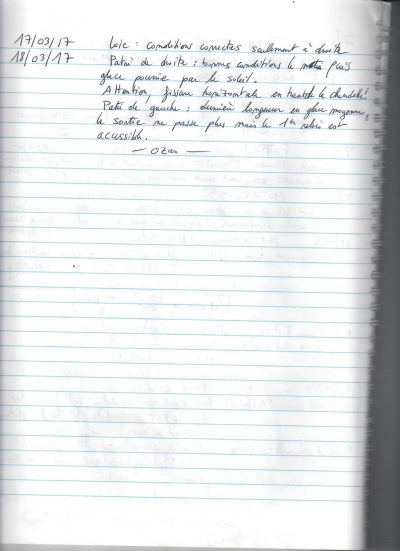 17/03/17 Loïc : conditions correctes seulement à droite
18/03/17 Patri de droite : bonnes conditions le matin puis
glace pourrie par le soleil.
Attention, fissure horizontale en haut de la chandelle !
Patri de gauche : dernière longueur en glace moyenne,
la sortie ne passe plus mais le 1er relais est
accessible.
— OZan —